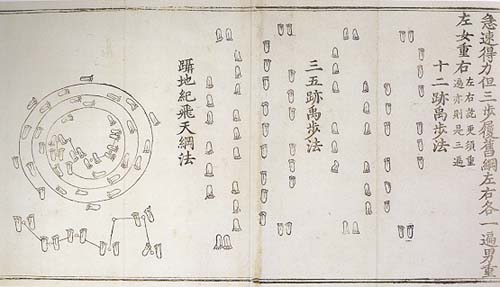 急速得力但三步履舊綱左右各一遍男重
左女重右
左右訖更須重
過亦則是三遍
十二跡禹步法
三五跡禹步法
躡地紀飛天綱法